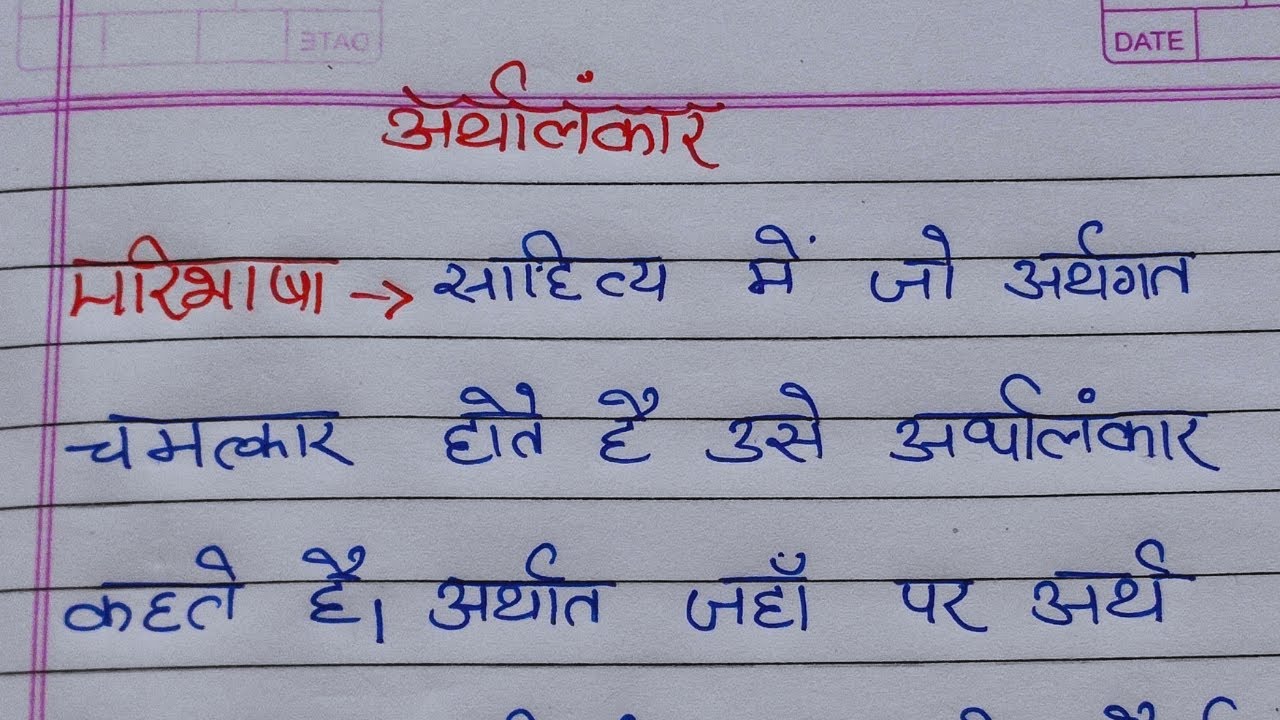 DATE
अर्थालंकार
परिभाषा → साहित्य में जो अर्थगत
चमत्कार होते है उसे अर्थालंकार
कहते है। अर्थात जहाँ पर अर्थ